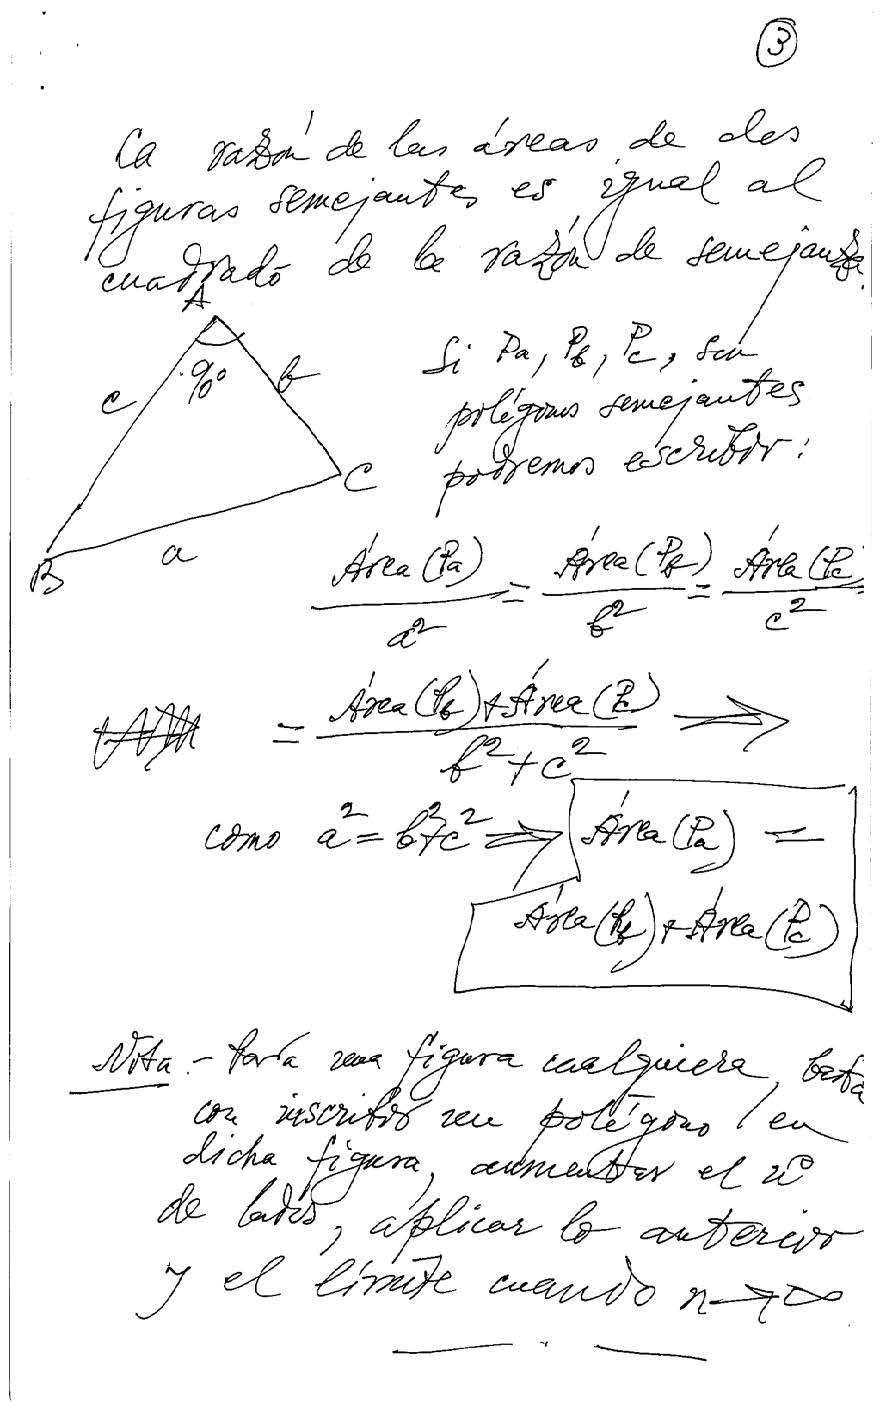 3
La razón de las áreas de dos
figuras semejantes es igual al
cuadrado de la razón de semejanza.
A
90°
c
b
C
B
a
Si Pa, Pb, Pc, son
polígonos semejantes
podremos escribir:
Área(Pa)/a² = Área(Pb)/b² = Área(Pc)/c²
= Área(Pb)+Área(Pc)/b²+c² ⇒
como a²=b²+c² ⇒ Área(Pa) =
Área(Pb)+Área(Pc)
Nota.- Para una figura cualquiera, basta
con inscribir un polígono en
dicha figura, aumentar el nº
de lados, aplicar lo anterior
y el límite cuando n→∞